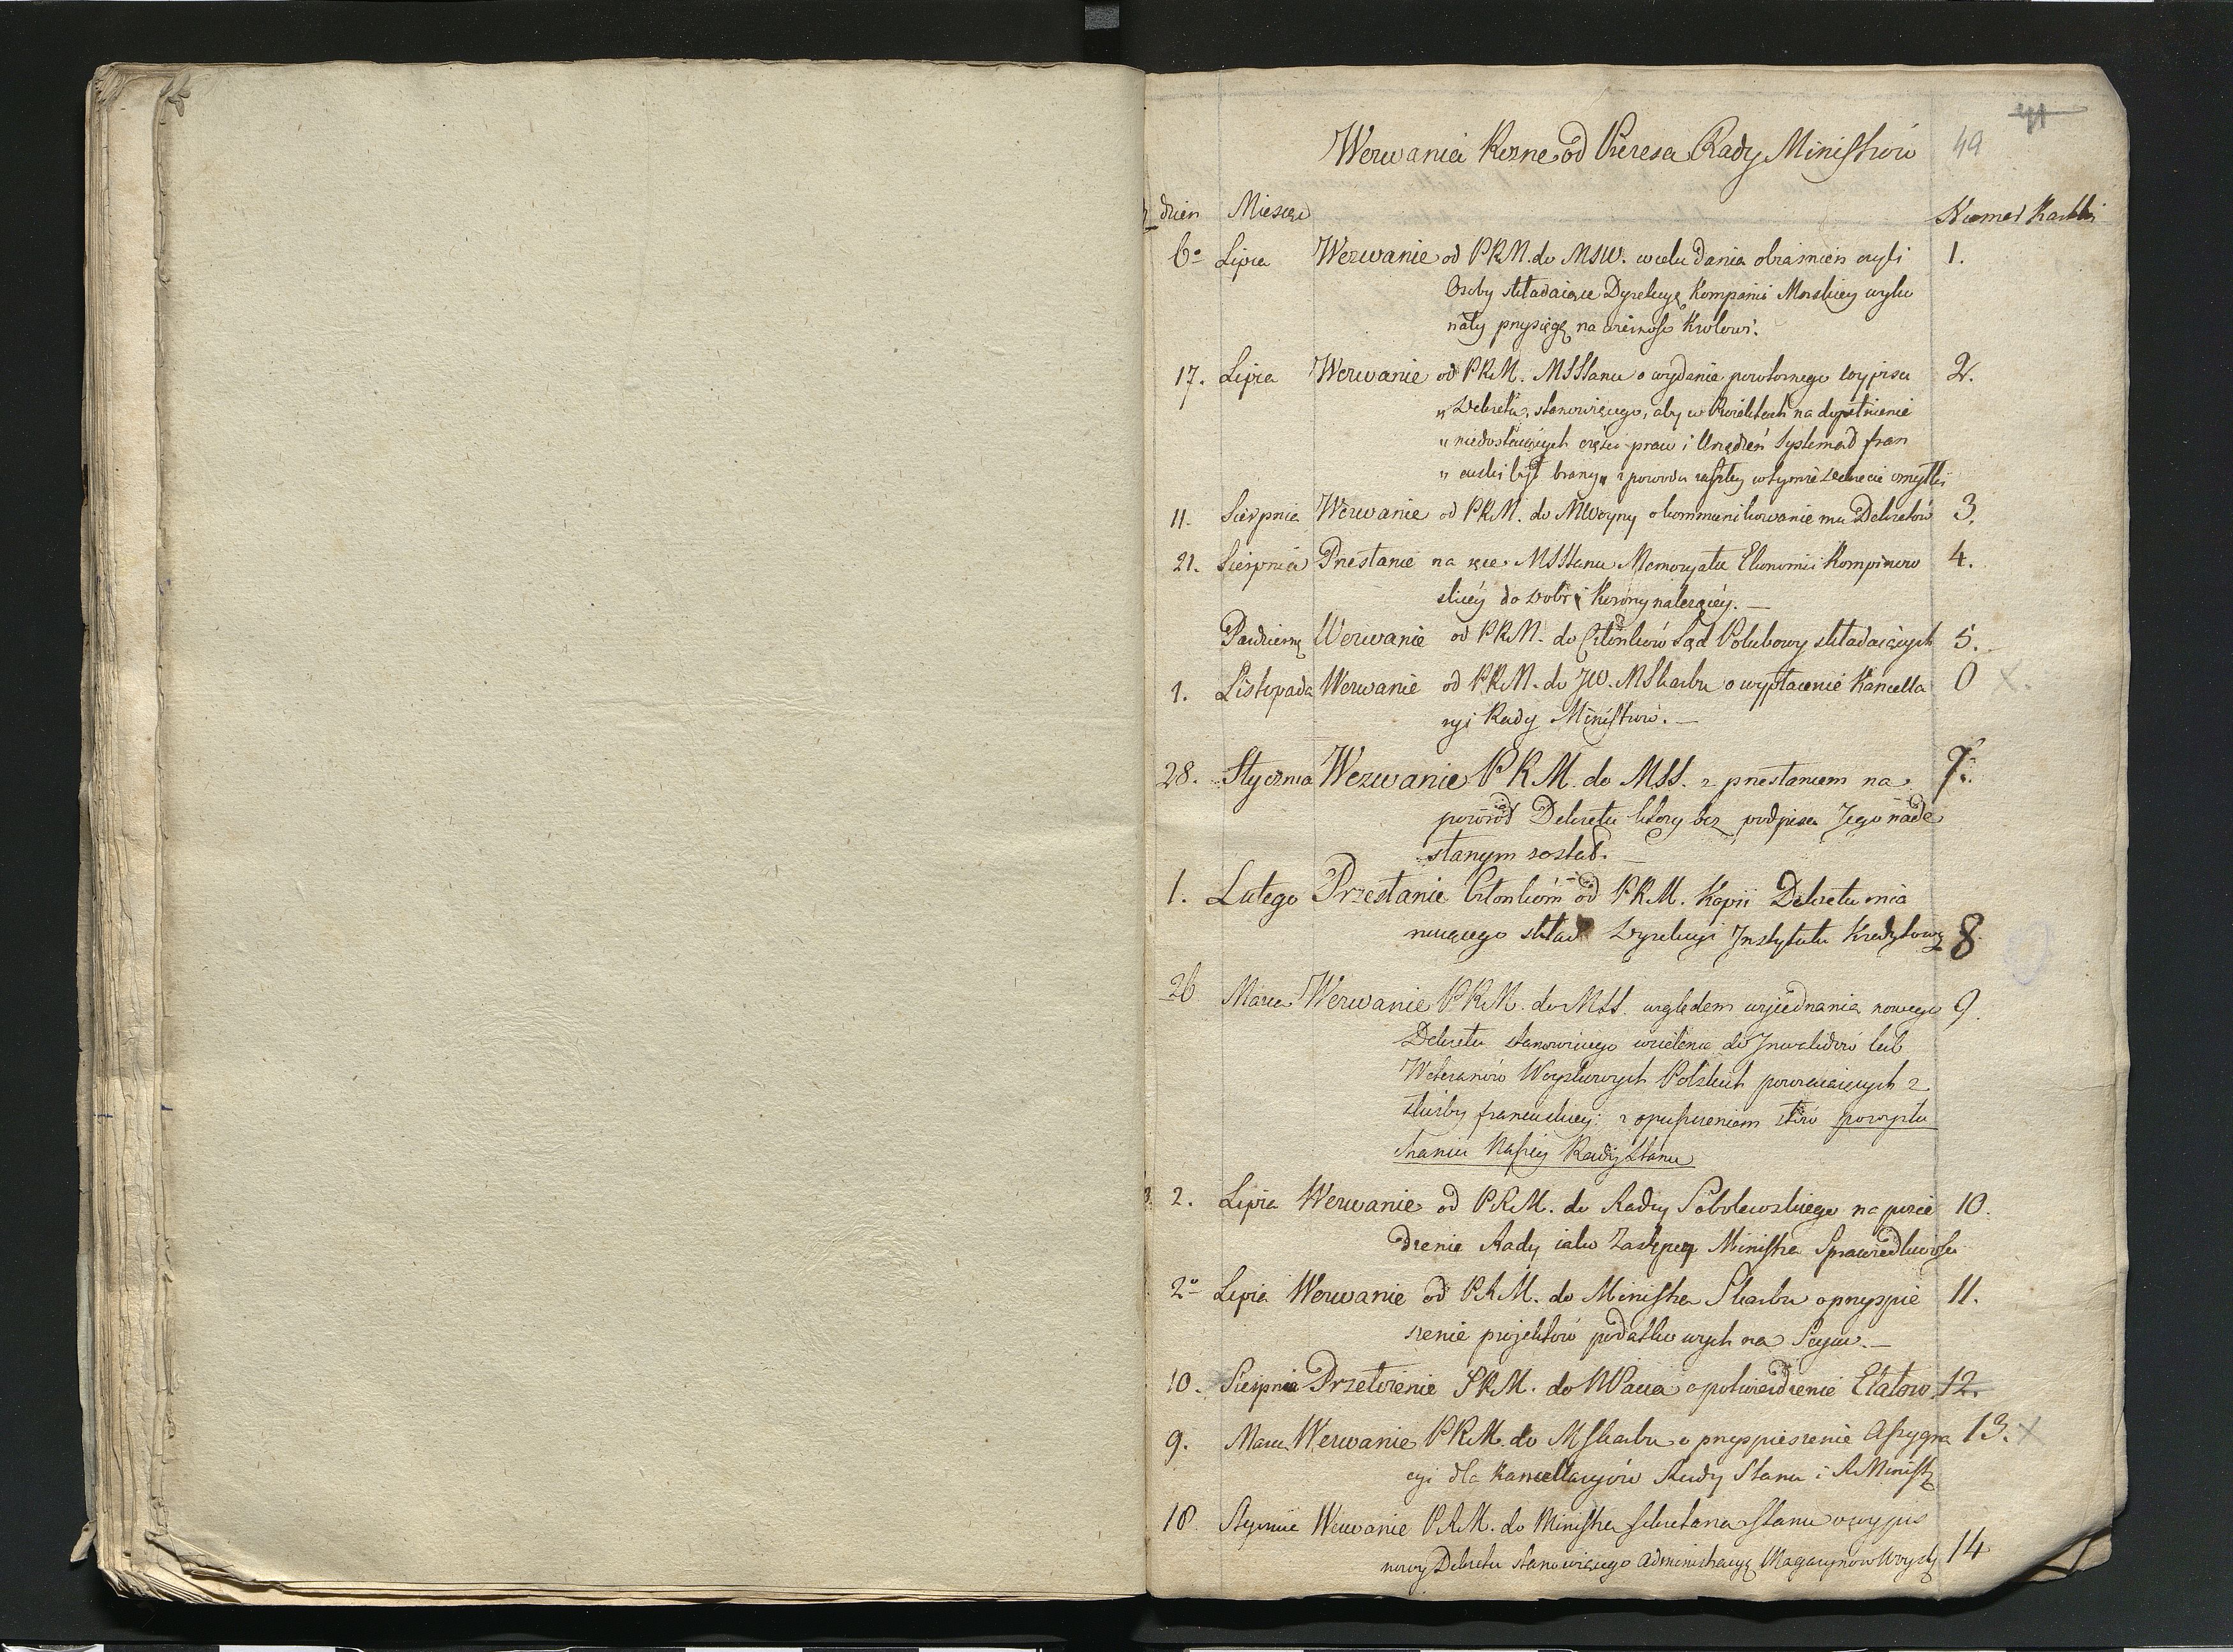 41
49
Wezwania Rozne od Prezesa Rady Ministrów
dzien Miesiąc Numer Kartki
6o Lipca Wezwanie od PRM. do MSW. w celu dania obiasnień czyli 1.
Osoby składaiące Dyrekcyą Kompanii Morskiey wyko
nały przysięgę na wierność Krolowi.
17. Lipca Wezwanie od PRM. MSStanu o wydanie powtornego wypisu 2.
„ Dekretu, stanowiącego, aby w na dopełnienie
„ niedostaiących części praw i Urządzeń Systemad fran
„ cuski był brany „ z powodu zaszłey w tymże Dekrecie omyłki
11. Sierpnia Wezwanie od PRM. do MWoyny o kommunikowanie mu Dekretów 3.
21. Sierpnia Przesłanie na ręce MSStanu Memoryału Ekonomii Kompinow 4.
skiéy do Dobr Korony należącéy. —
Pazdziern Wezwanie od PRM. do Członków Sąd Polubowy składaiących 5.
1. Listopada Wezwanie od PRM. do JW. MSkarbu o wypłacenie Kancella 0 x.
ryi Rady Ministrów. —
28. Stycznia Wezwanie PRM. do MSS. z przesłaniem na 7.
powród Dekretu ktory bez podpisu Jego nade
słanym został. —
1. Lutego Przesłanie Członkom od PRM. Kopii Dekretu mia
nuiącego skład Dyrekcyi Instytutu Kredytowe 8
26 Marca Wezwanie PRM. do MSS. względem wyiednania nowego 9.
Dekretu stanowiącego wcielenie do Inwalidów lub
Weteranów Woyskowych Polskich powracaiących z
służby francuskiey: z opuszczeniem słów po wysłu
chaniu Naszey Rady Stanu
2. Lipca Wezwanie od PRM. do Radzcy Sobolewskiego na posie 10.
dzenie Rady iako Zastępcę Ministra Sprawiedliwości
2o Lipca Wezwanie od PRM. do Ministra Skarbu o przyspie 11.
szenie projektów podatkowych na Seym. —
10. Sierpnia Przełożenie PRM. do NPana o potwierdzenie Etatow. 12.
9. Marca Wezwanie PRM. do MSkarbu o przyspieszenie Assygna 13. x
cyi dla Kancellaryiów Rady Stanu i RMinist
18. Stycznia Wezwanie PRM. do Ministra Sekretarza Stanu o wypis
nowy Dekretu stanowiącego Administracyą Magazynów Woysk 14